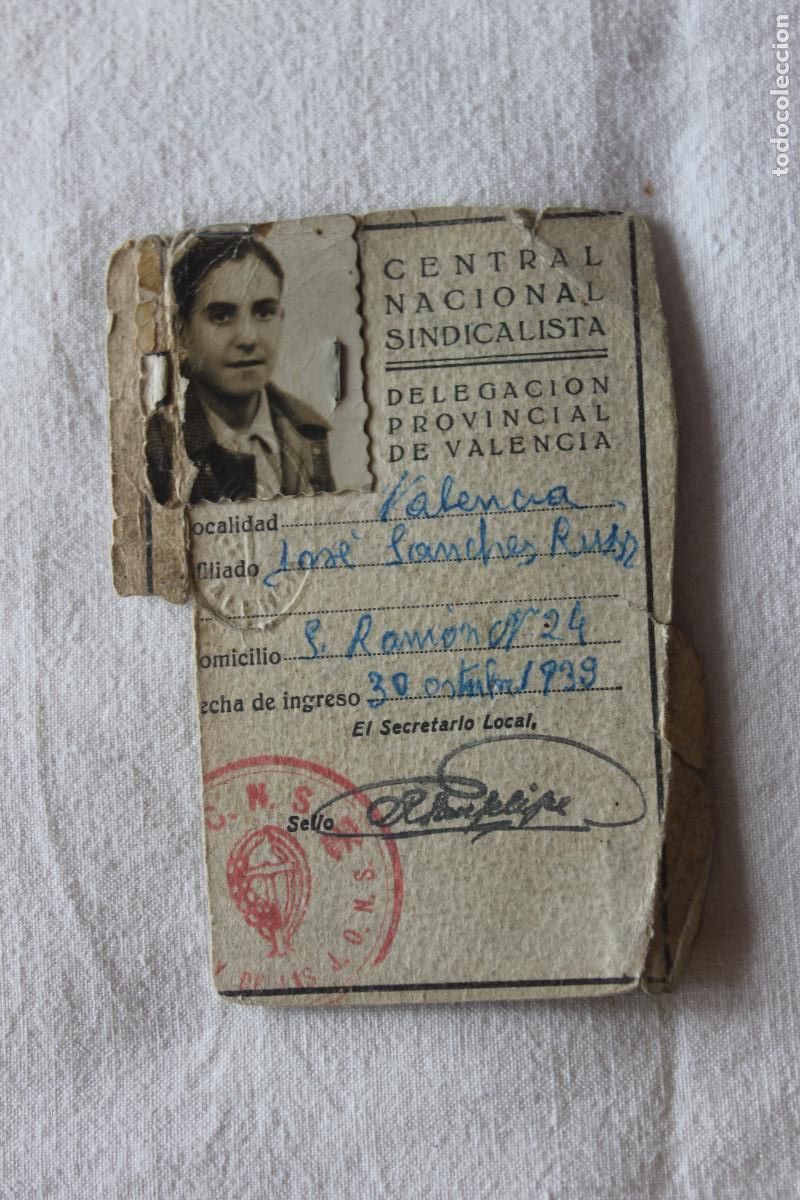 todocoleccion
CENTRAL
NACIONAL
SINDICALISTA
DELEGACION
PROVINCIAL
DE VALENCIA
ocalidad Valencia
filiado José Sanches Ruiz
omicilio S. Ramón Nº 24
echa de ingreso 30 octubre 1939
El Secretario Local,
Sello
C. N. S.
Y DE LAS J. O. N. S.